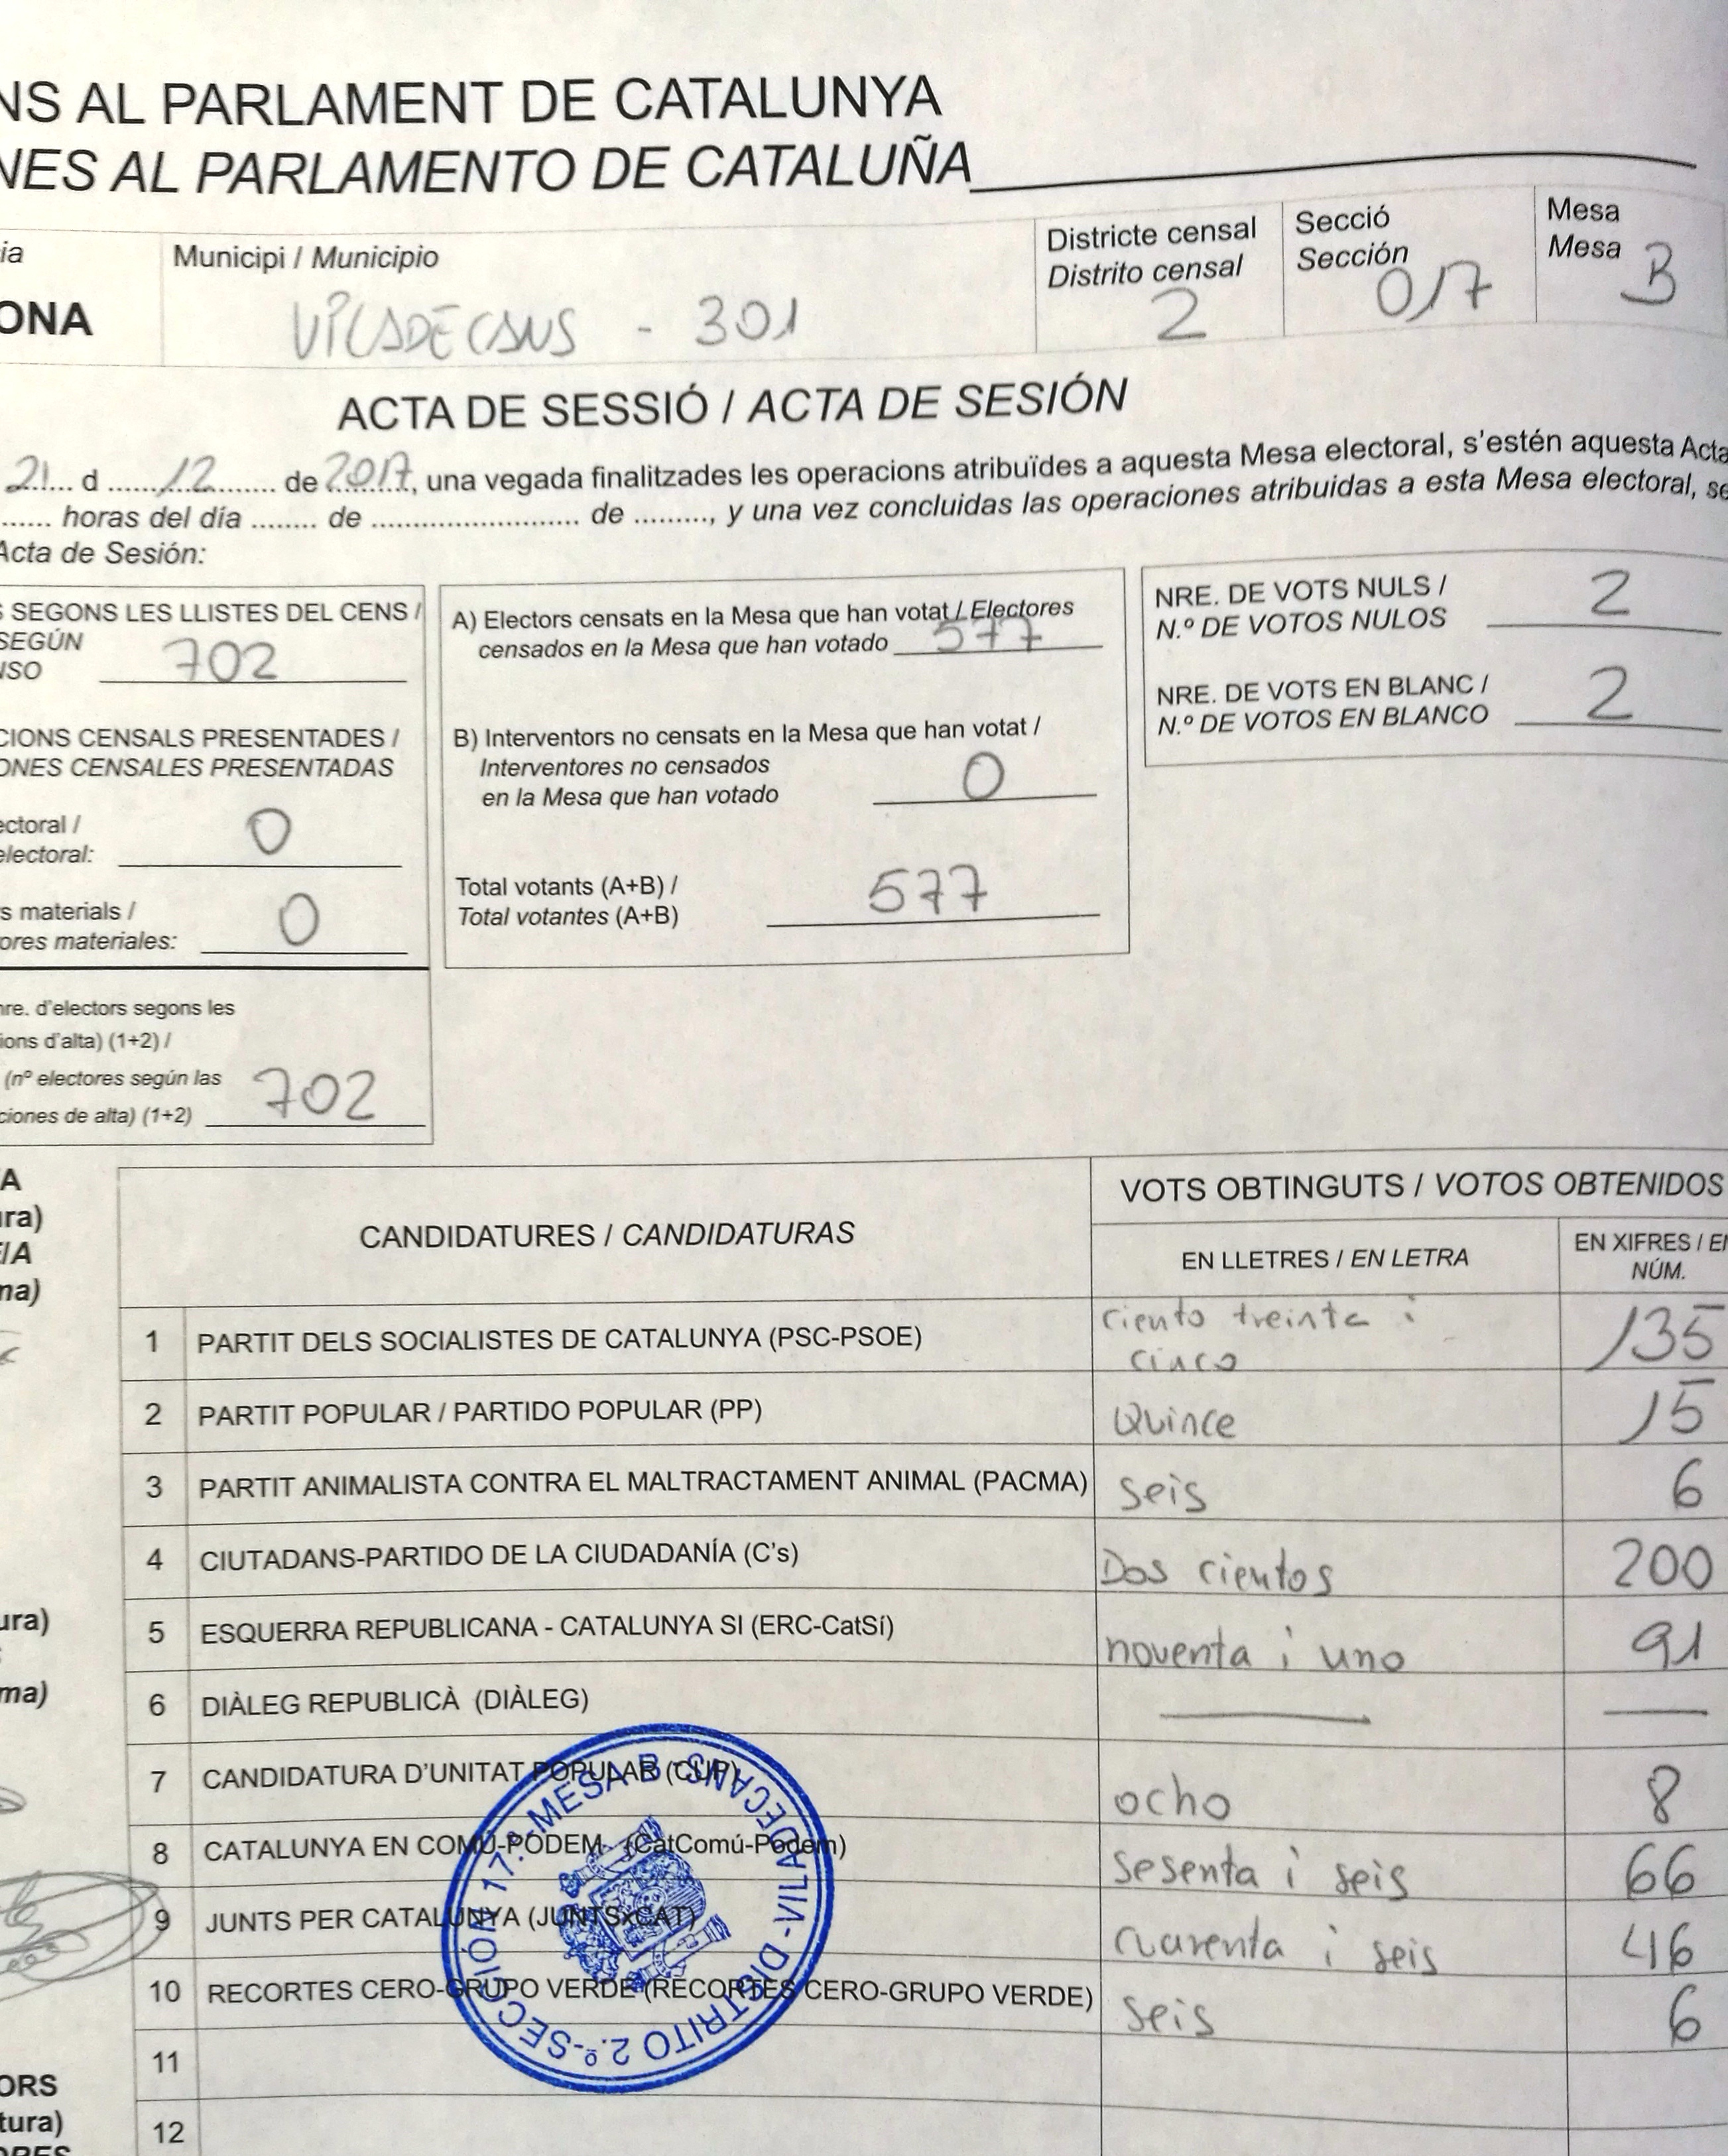 NS AL PARLAMENT DE CATALUNYA
NES AL PARLAMENTO DE CATALUÑA
ia
ONA
Municipi / Municipio
VILADECANS - 301
Districte censal
Distrito censal
2
Secció
Sección
017
Mesa
Mesa
B
ACTA DE SESSIÓ / ACTA DE SESIÓN
21 d 12 de 2017, una vegada finalitzades les operacions atribuïdes a aquesta Mesa electoral, s'estén aquesta Acta
...... horas del día ........ de .......................... de ........., y una vez concluidas las operaciones atribuidas a esta Mesa electoral, se
Acta de Sesión:
S SEGONS LES LLISTES DEL CENS /
SEGÚN
NSO 702
CIONS CENSALS PRESENTADES /
ONES CENSALES PRESENTADAS
ectoral /
electoral: 0
s materials /
ores materiales: 0
nre. d'electors segons les
ions d'alta) (1+2) /
(nº electores según las
ciones de alta) (1+2) 702
A) Electors censats en la Mesa que han votat / Electores
censados en la Mesa que han votado 577
B) Interventors no censats en la Mesa que han votat /
Interventores no censados
en la Mesa que han votado 0
Total votants (A+B) /
Total votantes (A+B) 577
NRE. DE VOTS NULS /
N.º DE VOTOS NULOS 2
NRE. DE VOTS EN BLANC /
N.º DE VOTOS EN BLANCO 2
A
ura)
E/A
ma)
CANDIDATURES / CANDIDATURAS
VOTS OBTINGUTS / VOTOS OBTENIDOS
EN LLETRES / EN LETRA
EN XIFRES / EN
NÚM.
1 PARTIT DELS SOCIALISTES DE CATALUNYA (PSC-PSOE) ciento treinta i cinco 135
2 PARTIT POPULAR / PARTIDO POPULAR (PP) Quince 15
3 PARTIT ANIMALISTA CONTRA EL MALTRACTAMENT ANIMAL (PACMA) seis 6
4 CIUTADANS-PARTIDO DE LA CIUDADANÍA (C's) Dos cientos 200
5 ESQUERRA REPUBLICANA - CATALUNYA SI (ERC-CatSí) noventa i uno 91
6 DIÀLEG REPUBLICÀ (DIÀLEG)
7 CANDIDATURA D'UNITAT POPULAR (CUP) ocho 8
8 CATALUNYA EN COMÚ-PODEM (CatComú-Podem) sesenta i seis 66
9 JUNTS PER CATALUNYA (JUNTSxCAT) cuarenta i seis 46
10 RECORTES CERO-GRUPO VERDE (RECORTES CERO-GRUPO VERDE) seis 6
11
12
ura)
ma)
ORS
tura)
ORES
VILADECANS - DISTRITO 2.º-SECCION 17.ª-MESA B